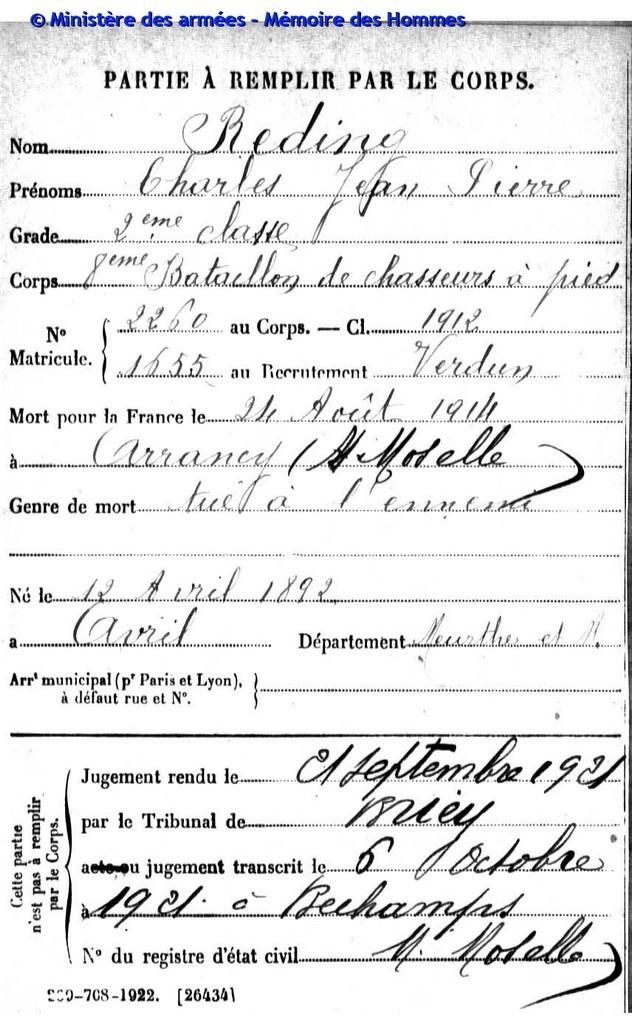 © Ministère des armées - Mémoire des Hommes
PARTIE À REMPLIR PAR LE CORPS.
Nom Reding
Prénoms Charles Jean Pierre
Grade 2ème classe
Corps 8ème Bataillon de chasseurs à pied
N° Matricule. { 2260 au Corps. — Cl. 1912
1655 au Recrutement Verdun
Mort pour la France le 24 Août 1914
à Arrancy ( Moselle )
Genre de mort tué à l'ennemi
Né le 12 Avril 1892
a Avril Département Meurthe et M.
Arrt municipal (pr Paris et Lyon), }
à défaut rue et N°.
Cette partie n'est pas à remplir par le Corps.
Jugement rendu le 21 septembre 1921
par le Tribunal de Briey
acte ou jugement transcrit le 6 Octobre
à 1921 à Bechamps
N° du registre d'état civil M. Moselle )
708-1922. [26434]